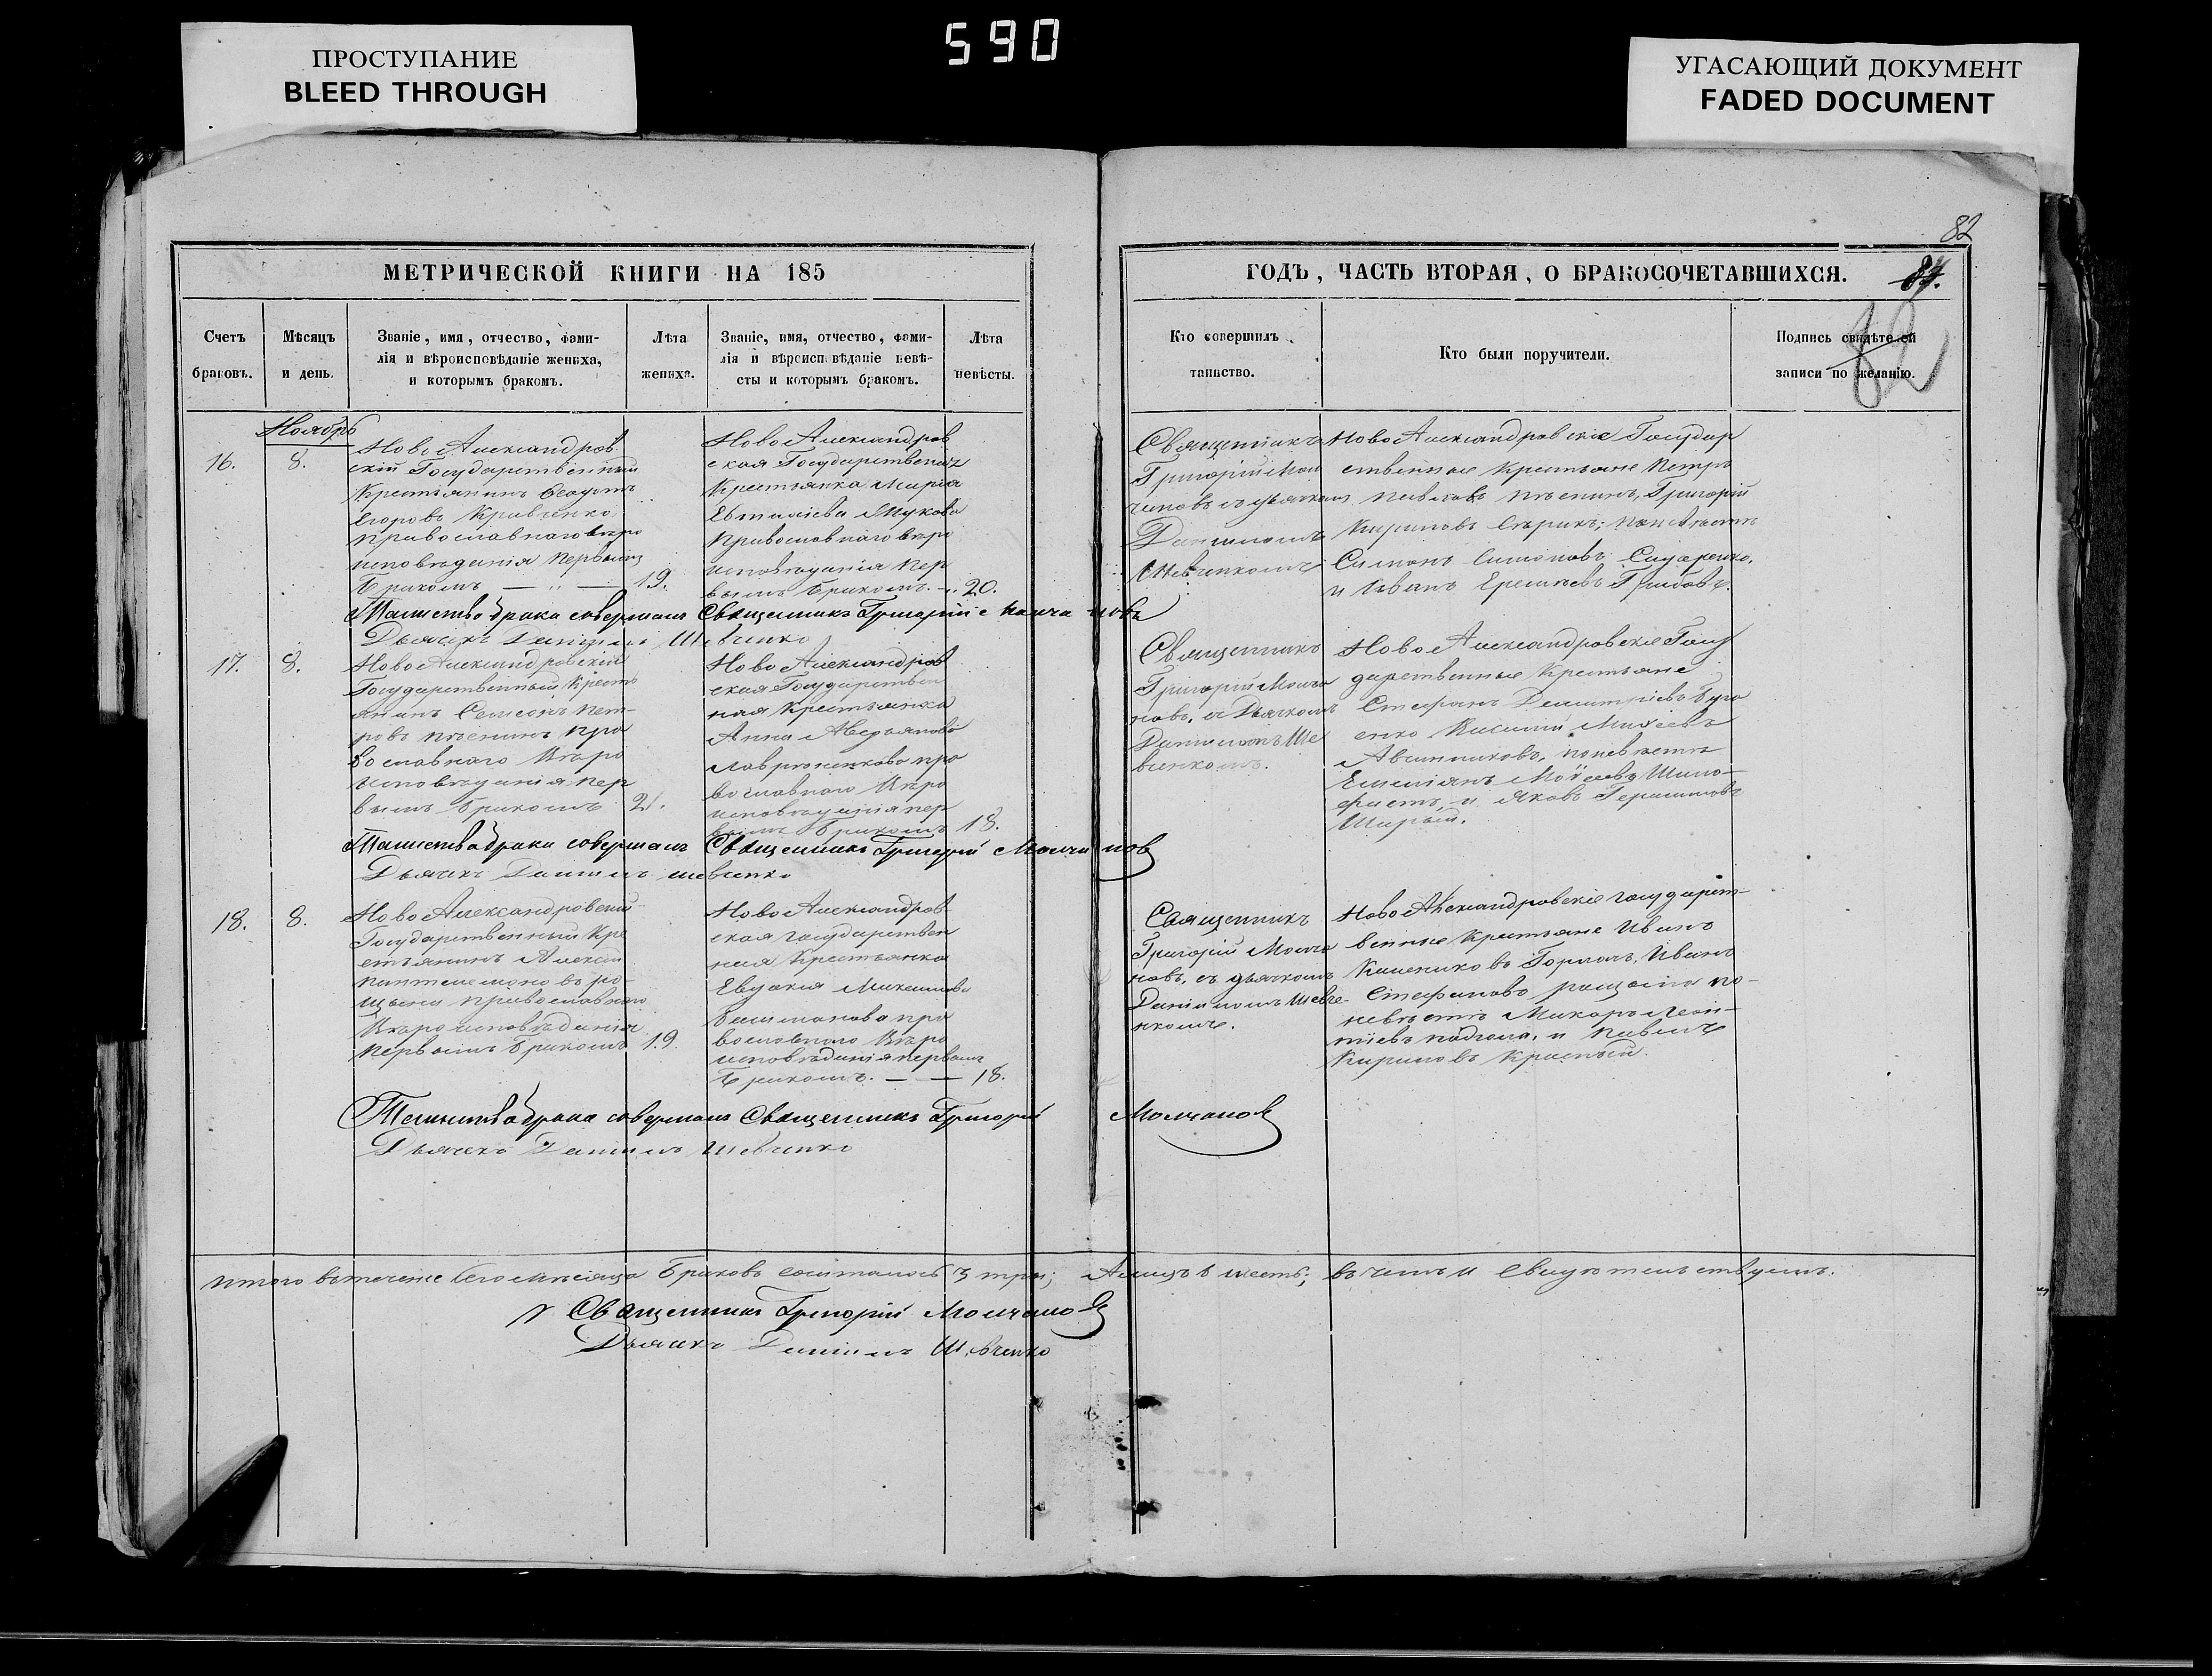 590
ПРОСТУПАНИЕ
BLEED THROUGH
УГАСАЮЩИЙ ДОКУМЕНТ
FADED DOCUMENT
82
МЕТРИЧЕСКОЙ КНИГИ НА 185
Счетъ
браковъ.
Мѣсяцъ
и день.
Званіе, имя, отчество, фами-
лія и вѣроисповѣданіе жениха,
и которымъ бракомъ.
Лѣта
жениха.
Званіе, имя, отчество, фами-
лія и вѣроисповѣданіе невѣ-
сты и которымъ бракомъ.
Лѣта
невѣсты.
ГОДЪ, ЧАСТЬ ВТОРАЯ, О БРАКОСОЧЕТАВШИХСЯ.
84.
82
Кто совершилъ
таинство.
Кто были поручители.
Подпись свидѣтелей
записи по желанію.
Ноябрь
16.
8.
Ново Александров
скій Государственный
Крестьянинъ
Егоровъ Кравченко
православнаго вѣро
исповѣданія первымъ
бракомъ — " — 19.
Ново Александров
ская Государственная
Крестьянка Марія
Православнаго вѣро
исповѣданія пер
вымъ бракомъ. — " 20.
Священникъ
Григорій Мол
чановъ съ дьячкомъ
Даниломъ
Шевченкомъ
Ново Александровскіе Государ
ственные Крестьяне Петръ
Григорій
Кириловъ
Симонъ
и Иванъ
Таинство брака совершалъ Священникъ Григорій Молчановъ
Дьячекъ Даніилъ Шевченко
17.
8.
Ново Александровскій
Государственный Кресть
янинъ Семіонъ Пет-
ровъ пра
вославнаго Вѣро
исповѣданія пер
вымъ бракомъ 21.
Ново Александров
ская Государствен
ная Крестьянка
Анна Аверьянова
пра
вославнаго Вѣро
исповѣданія пер
вымъ бракомъ 18.
Священникъ
Григорій Молча
новъ, съ Дьячкомъ
Даниломъ Ше
вченкомъ.
Ново Александровскіе Госу
дарственные Крестьяне
Стефанъ Димитріевъ
Василій
по невѣстѣ
и Яковъ Герасимовъ
Таинство брака совершалъ Священникъ Григорій Молчанов
Дьячекъ Даніилъ Шевченко
18.
8.
Ново Александровскій
Государственный Кре
стьянинъ Алексій
православнаго
Вѣроисповѣданія
первымъ бракомъ 19.
Ново Александров
ская государствен
ная Крестьянка
Евдокія
пра
вославнаго Вѣро
исповѣданія первымъ
бракомъ. — — 18.
Священникъ
Григорій Молча
новъ, съ дьячкомъ
Даниломъ Шевче-
нкомъ.
Ново Александровскіе государст-
венные Крестьяне Иванъ
Иванъ
Стефановъ по-
невѣстѣ Макаръ Леон-
тіевъ и Павелъ
Кириловъ Красный.
Таинство брака совершалъ Священникъ Григорій Молчанов
Дьячекъ Даніилъ Шевченко
Итого втечене сего мѣсяца браковъ состоялось 3 три; Алицъ 6 шесть; въ чемъ и свидѣтельствуемъ.
Священникъ Григорій Молчанов
Дьячекъ Даніилъ Шевченко